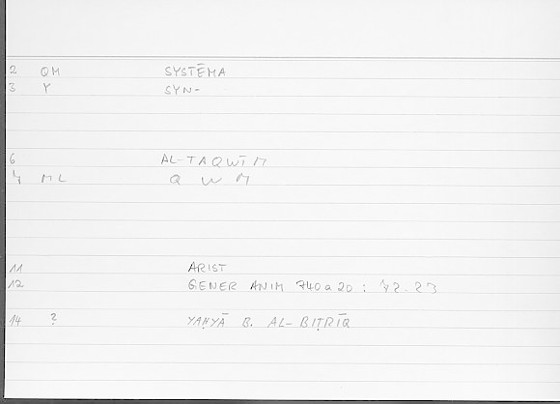 2 QM SYSTĒMA
3 Y SYN-
6 AL-TAQWĪM
4 ML Q W M
11 ARIST
12 GENER ANIM 740a20 : 42.23
14 ? YAḤYĀ B. AL-BIṬRĪQ